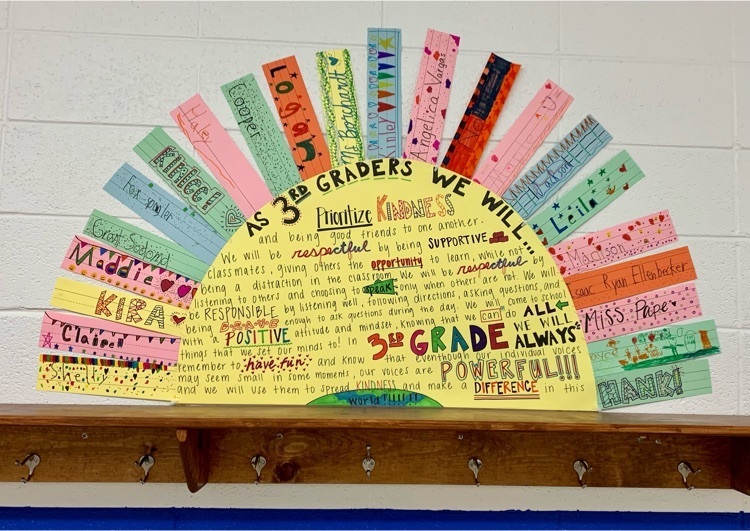 Skelly
Claire
KIRA
Maddie
Grant
Fox
ABEEL
Haley
Cooper
Logan
Ms Borchardt
Finley
Angelica Vargas
Leila
Madison
Isaac Ryan Ellenbecker
Miss Paipe
HANK!
AS 3RD GRADERS WE WILL...
Prioritize KINDNESS
and being good friends to one another.
We will be respectful by being SUPPORTIVE
classmates, giving others the opportunity to learn, while not
being a distraction in the classroom. We will be respectful by
listening to others and choosing to speak only when others are not. We will
be RESPONSIBLE by listening well, following directions, asking questions, and
being BRAVE enough to ask questions during the day. We will come to school
with a POSITIVE attitude and mindset, knowing that we can do ALL
things that we set our minds to! In 3RD GRADE WE WILL ALWAYS
remember to have fun and know that eventhough our individual voices
may seem small in some moments, our voices are POWERFUL!!!
and we will use them to spread KINDNESS and make a DIFFERENCE in this
world!!!!!!